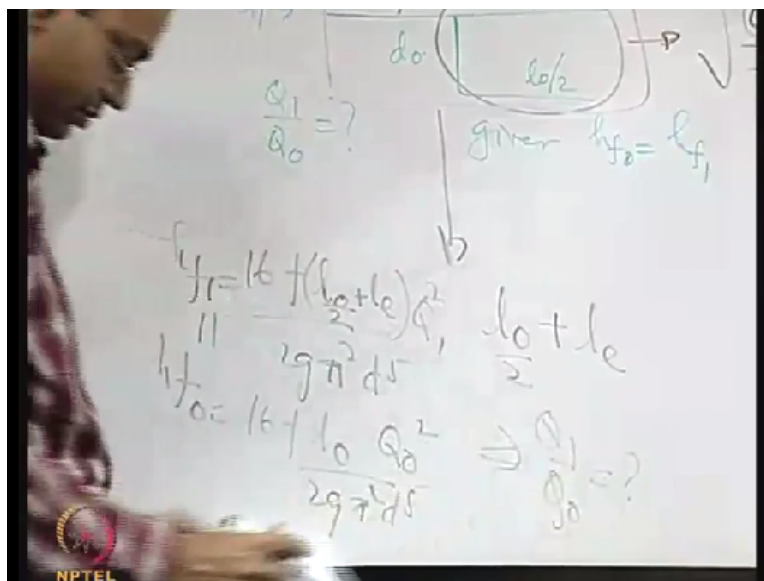 d₀ l₀/2 → P √
Q₁/Q₀ = ?
given h_f₀ = h_f₁
h_f₁ = 16 f(l₀/2 + l_e) Q₁² / 2gπ²d⁵
l₀/2 + l_e
||
h_f₀ = 16 f l₀ Q₀² / 2gπ²d⁵ ⇒ Q₁/Q₀ = ?
NPTEL